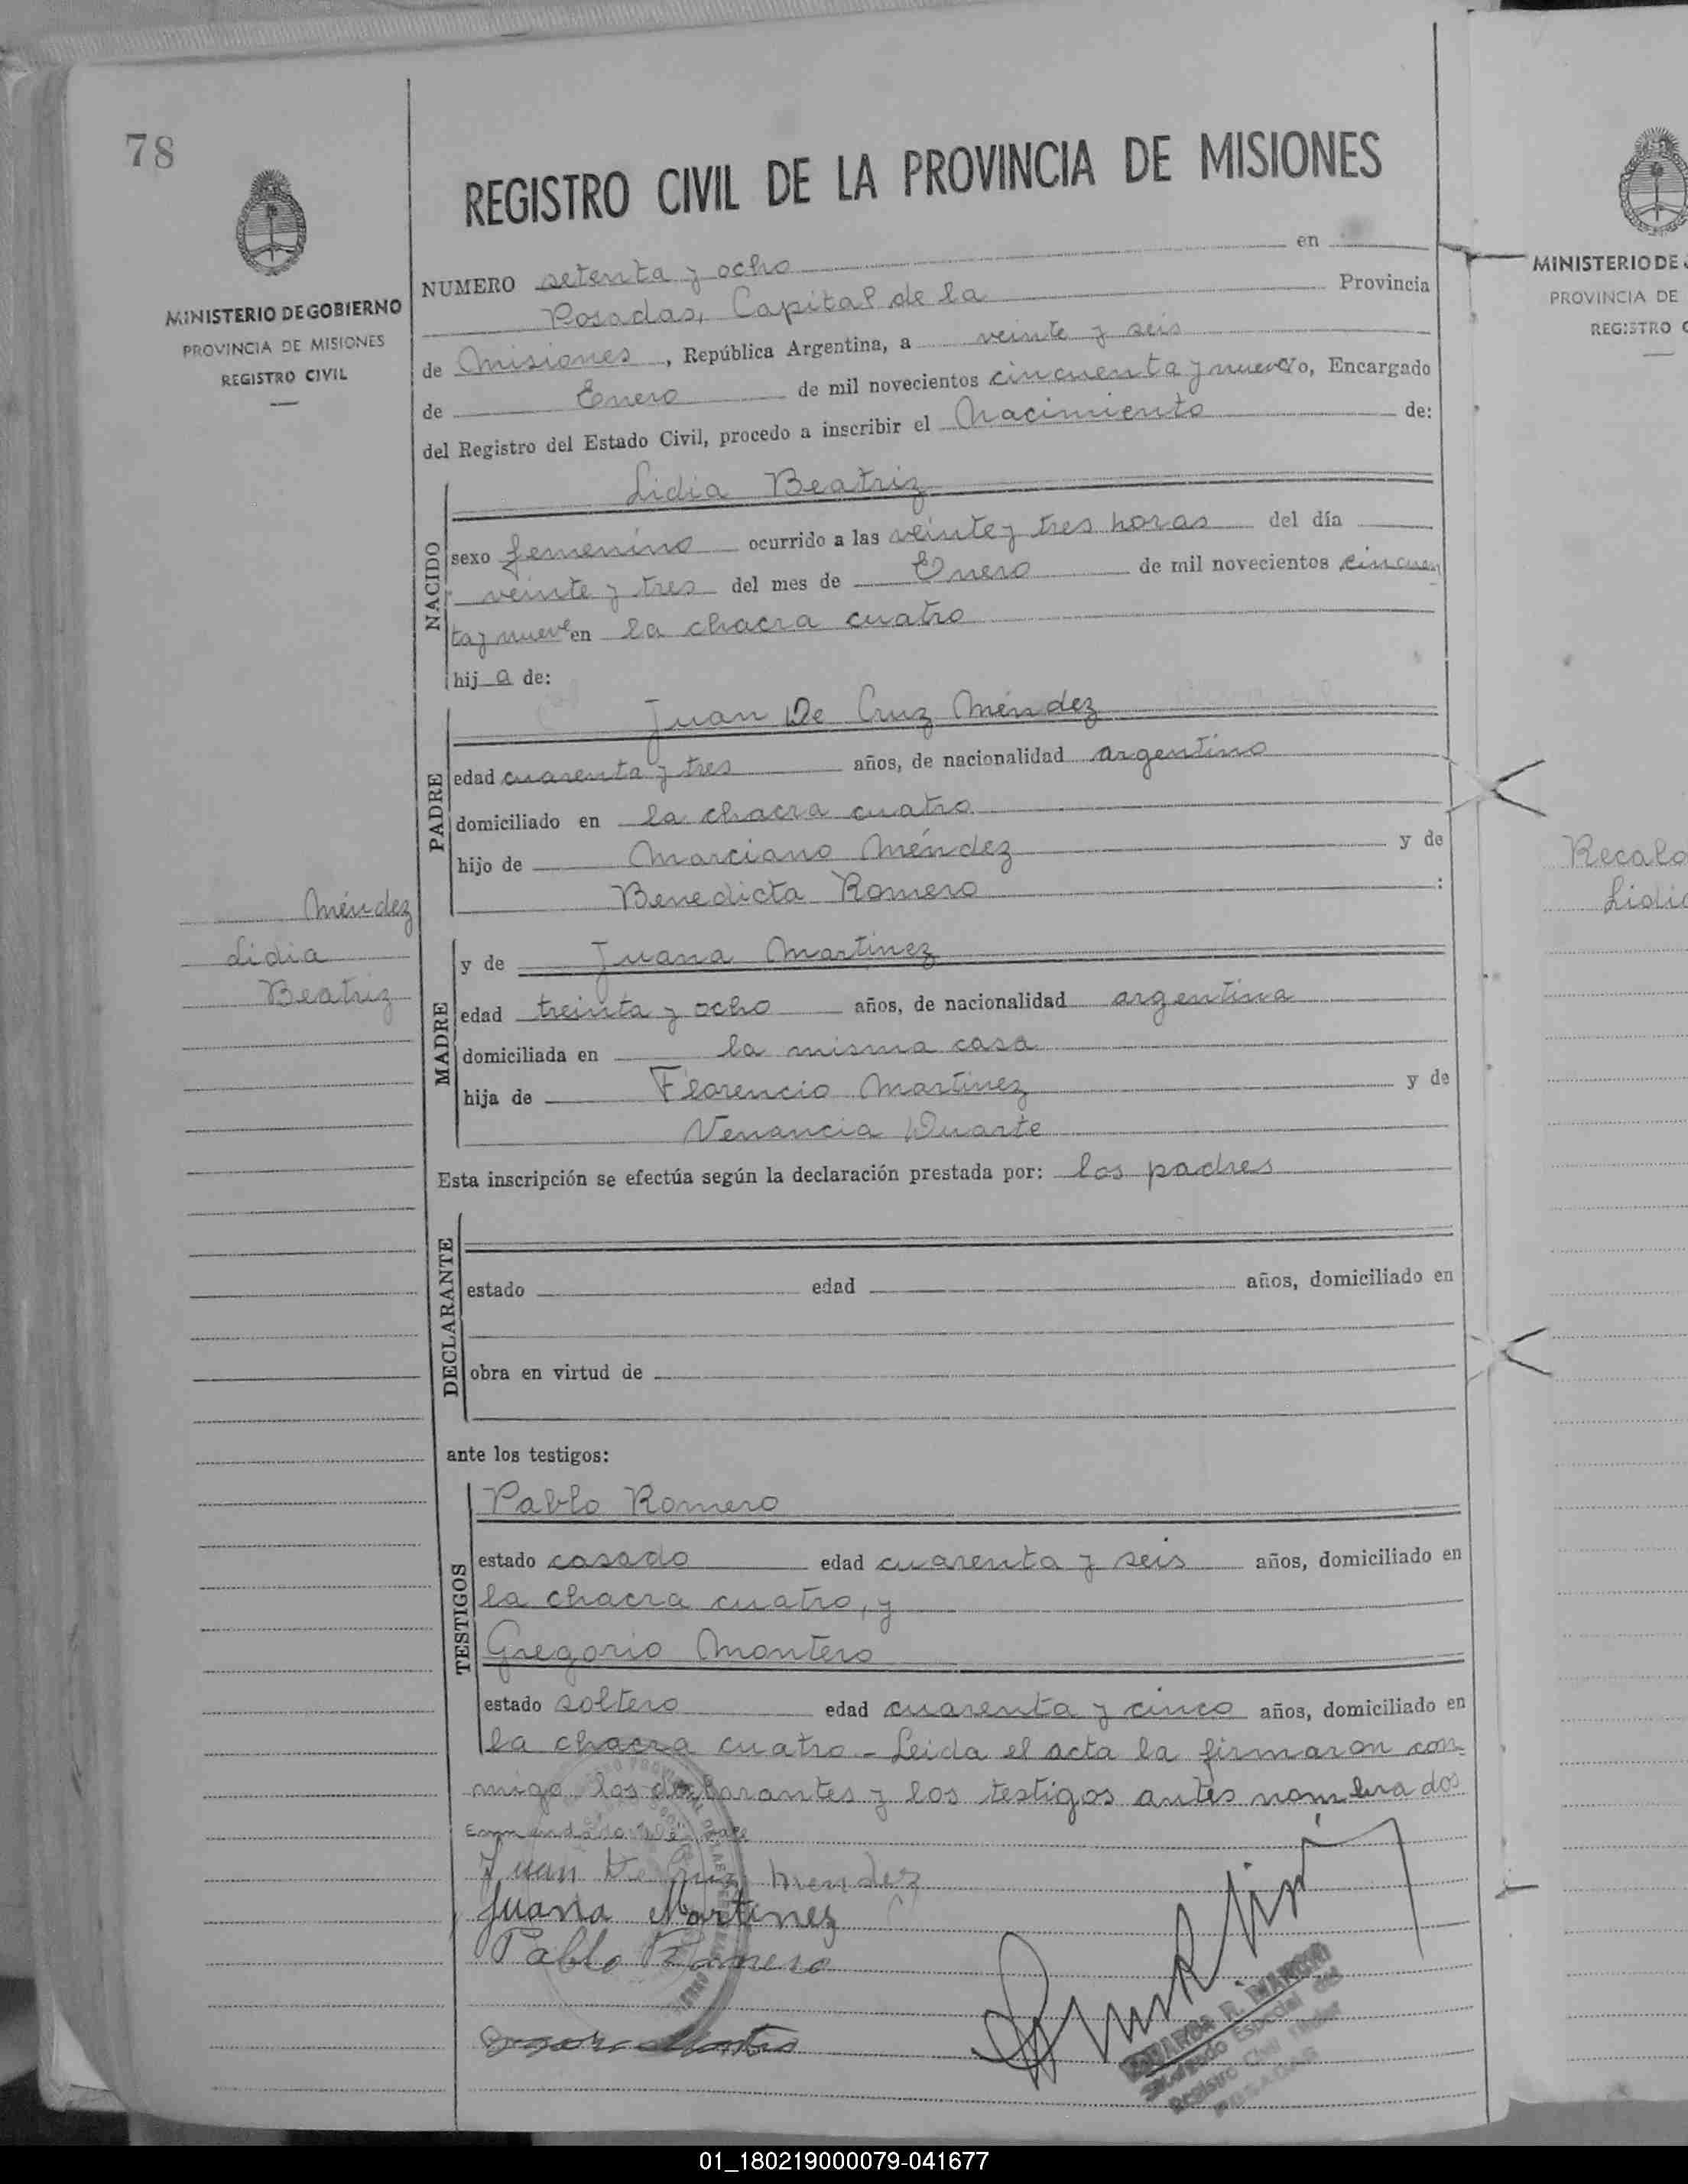 78
MINISTERIO DE GOBIERNO
PROVINCIA DE MISIONES
REGISTRO CIVIL
REGISTRO CIVIL DE LA PROVINCIA DE MISIONES
NUMERO setenta y ocho en
Posadas, Capital de la Provincia
de Misiones, República Argentina, a veinte y seis
de Enero de mil novecientos cincuenta y nueve Yo, Encargado
del Registro del Estado Civil, procedo a inscribir el Nacimiento de:
NACIDO
Lidia Beatriz
sexo femenino ocurrido a las veinte y tres horas del día
veinte y tres del mes de Enero de mil novecientos cincuen
ta y nueve en la chacra cuatro
hij a de:
PADRE
Juan De Cruz Méndez
edad cuarenta y tres años, de nacionalidad argentino
domiciliado en la chacra cuatro
hijo de Marciano Méndez y de
Benedicta Romero :
Méndez
Lidia
Beatriz
MADRE
y de Juana Martinez
edad treinta y ocho años, de nacionalidad argentina
domiciliada en la misma casa
hija de Florencio Martinez y de
Venancia Duarte
Esta inscripción se efectúa según la declaración prestada por: los padres
DECLARANTE
estado edad años, domiciliado en
obra en virtud de
ante los testigos:
TESTIGOS
Pablo Romero
estado casado edad cuarenta y seis años, domiciliado en
la chacra cuatro, y
Gregorio Montero
estado soltero edad cuarenta y cinco años, domiciliado en
la chacra cuatro - Leida el acta la firmaron con-
migo los declarantes y los testigos antes nombrados
Juan De Cruz Mendez
Juana Martinez
Pablo Romero
Especial del
Registro Civil
POSADAS
MINISTERIO DE
PROVINCIA DE
REGISTRO C
Recalo
Lidia
01_180219000079-041677